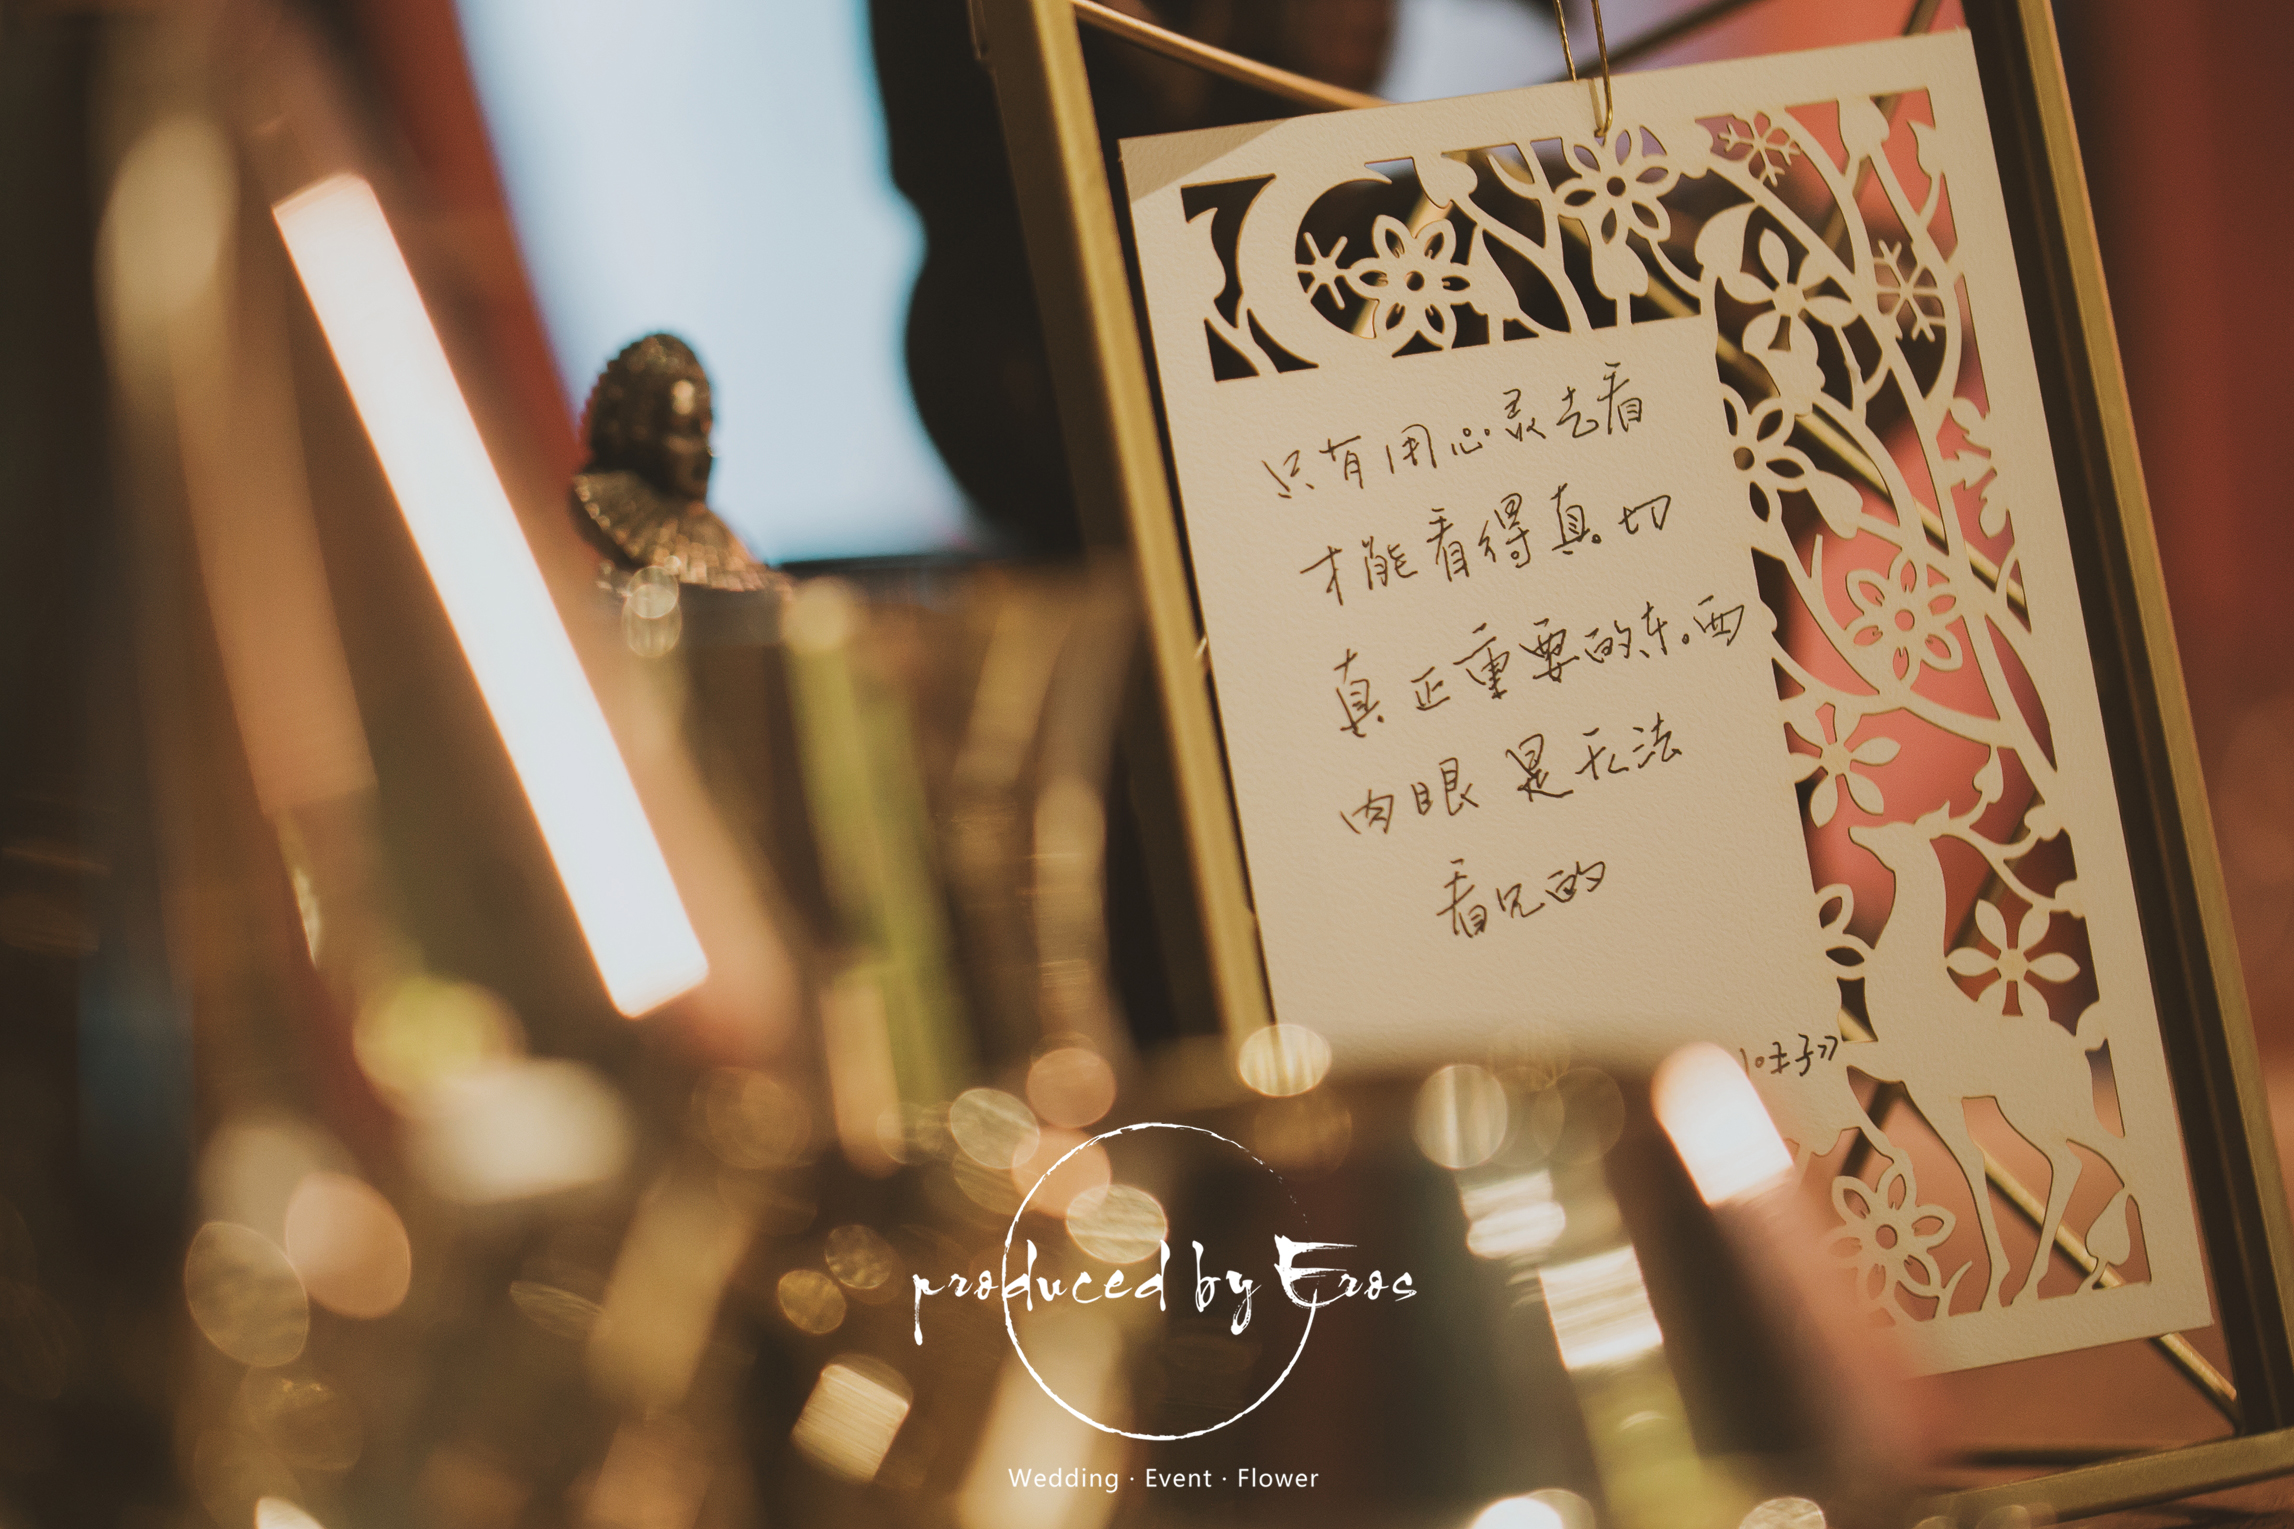 只有用心灵去看
才能看得真切
真正重要的东西
肉眼是无法
看见的
小王子》
produced by Eros
Wedding · Event · Flower